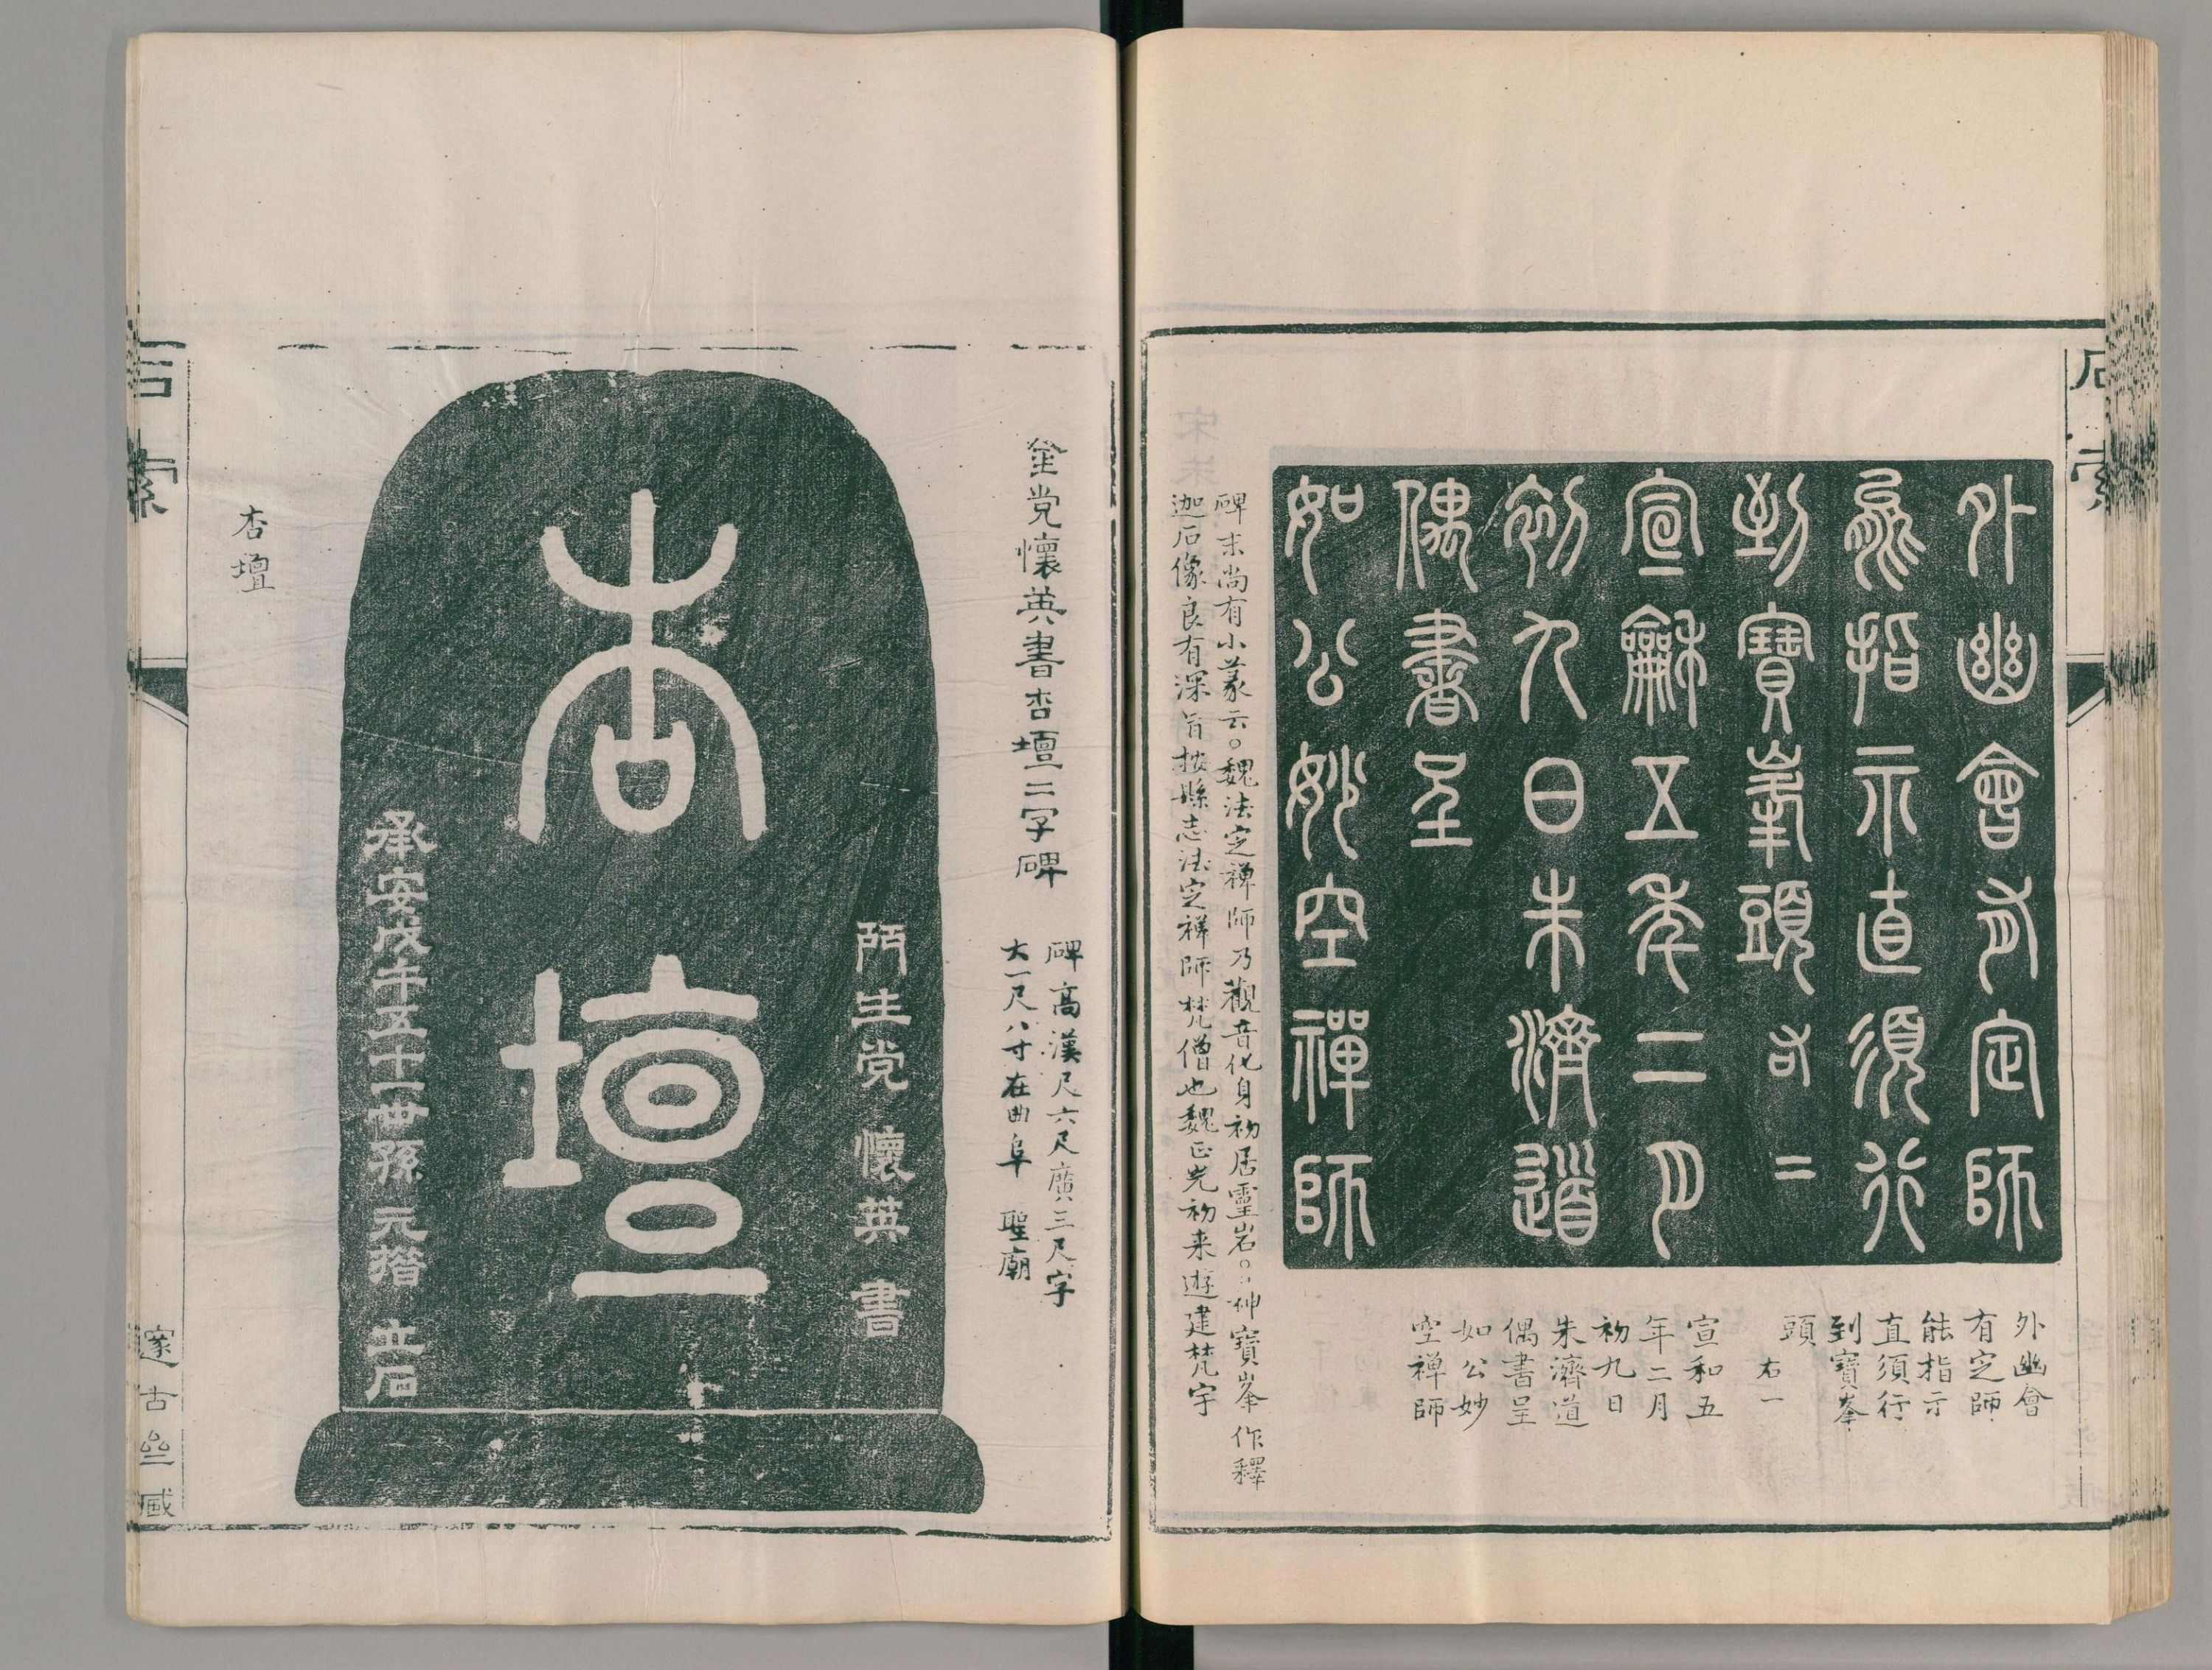 石索
外幽會有定師
能指示直須行
到寶峯頭 右二
宣龢五年二月
初九日朱濟道
偶書呈
如公妙空禪師
外幽會
有定師
能指示
直須行
到寶峯
頭
右一
宣和五
年二月
初九日
朱濟道
偶書呈
如公妙
空禅師
碑末尚有小篆云。魏法定禅師乃觀音化身初居靈岩。神寶峯作釋
迦石像良有深旨按縣志法定禅師梵僧也魏正光初来遊建梵宇
金党懷英書杏壇二字碑
碑高漢尺六尺廣三尺字
大一尺八寸在曲阜 聖廟
門生党懷英書
杏壇
承安戊午五十一世孫元措立石
杏壇
石索
邃古齋藏